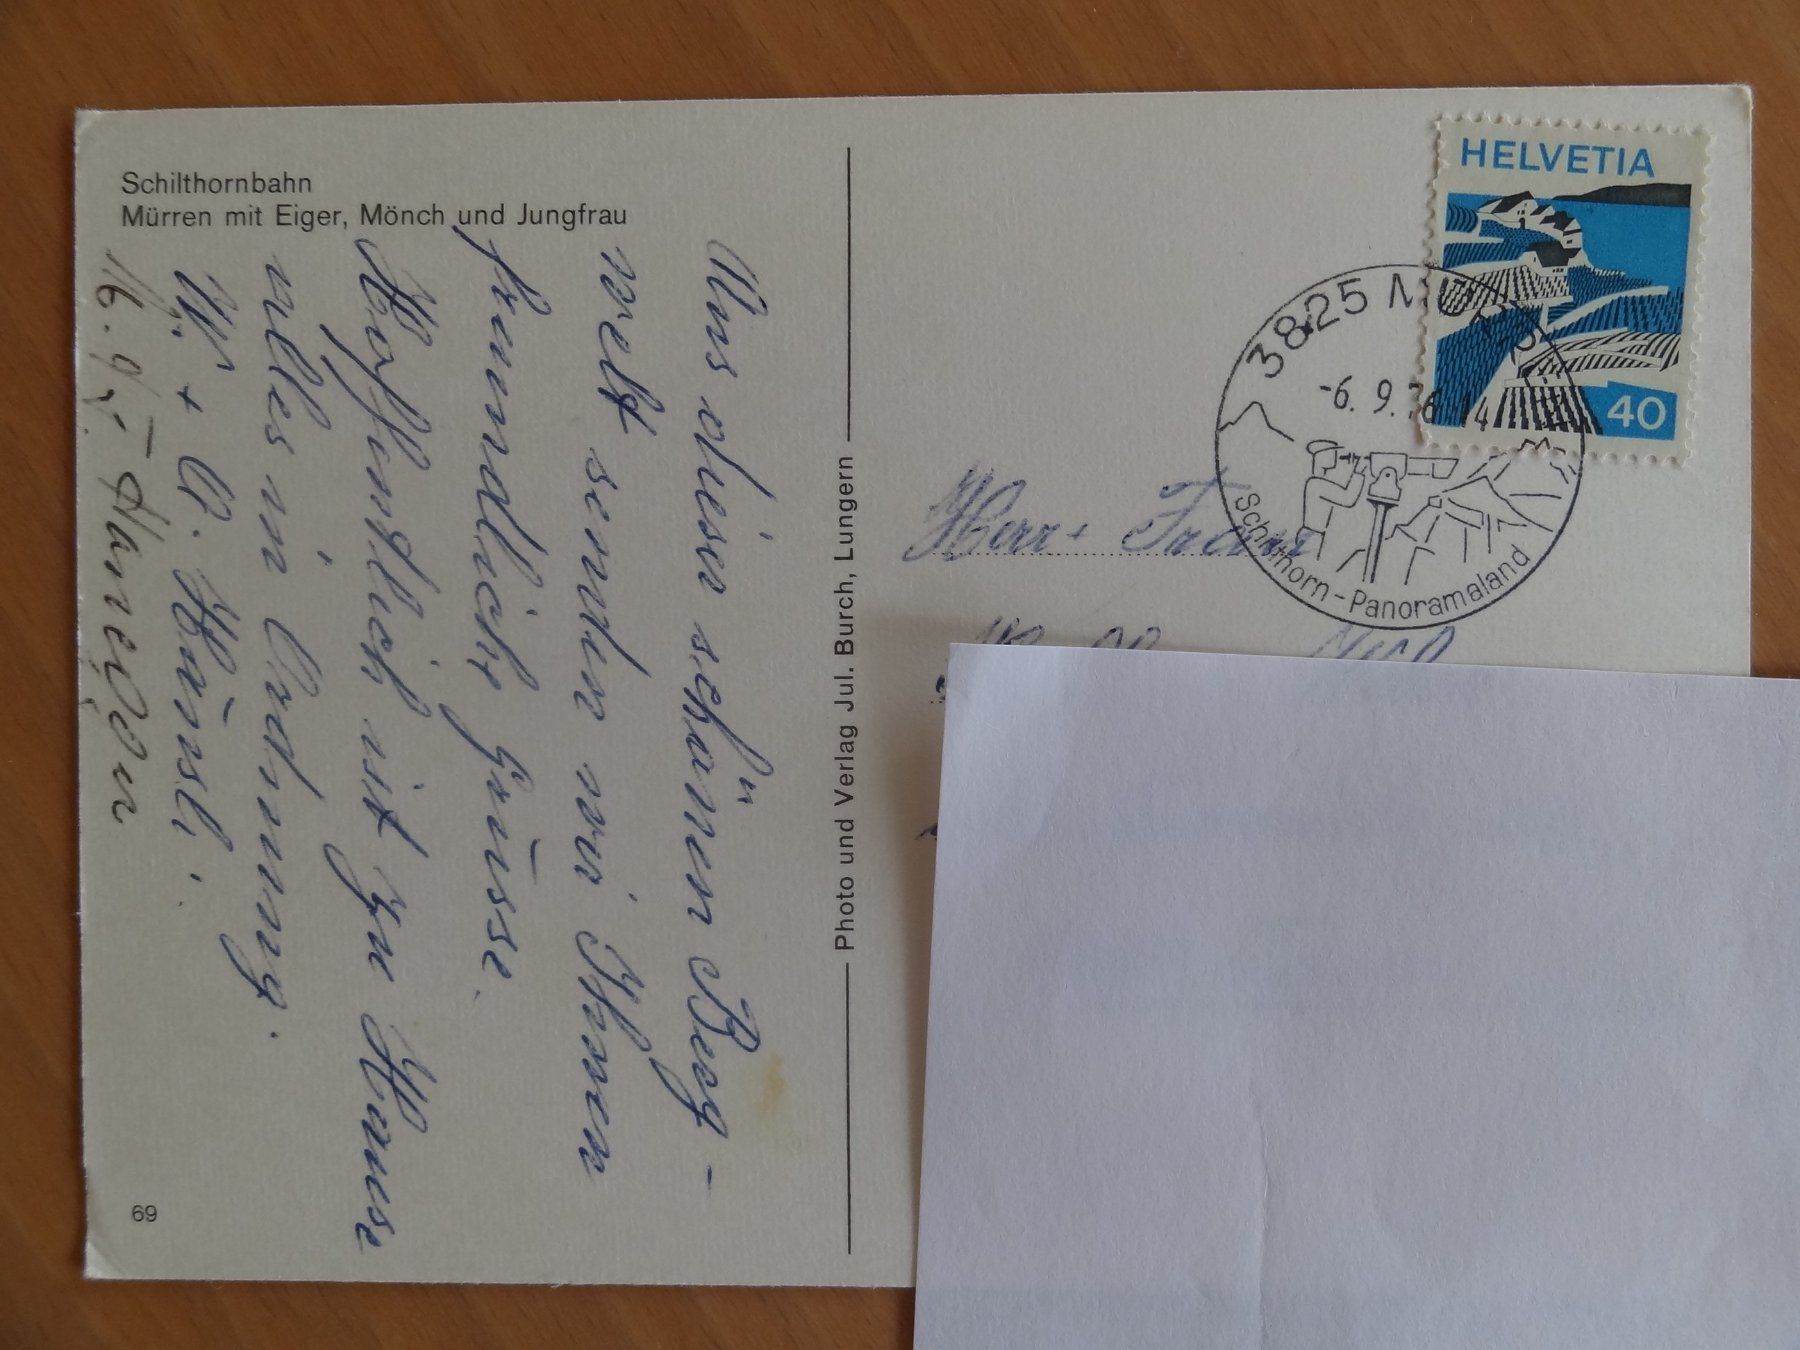 Schilthornbahn
Mürren mit Eiger, Mönch und Jungfrau
Aus dieser schönen Berg-
welt senden wir Ihnen
freundliche Grüsse.
Hoffentlich ist zu Hause
alles in Ordnung.
W. + A. Häusli.
69
Photo und Verlag Jul. Burch, Lungern
HELVETIA
40
3825 MÜRREN
-6. 9. 76-14
Schilthorn-Panoramaland
Herr + Frau